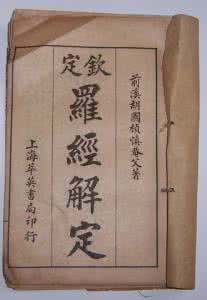 前溪胡國楨慎菴父著
欽定
羅經解定
上海萃英書局印行